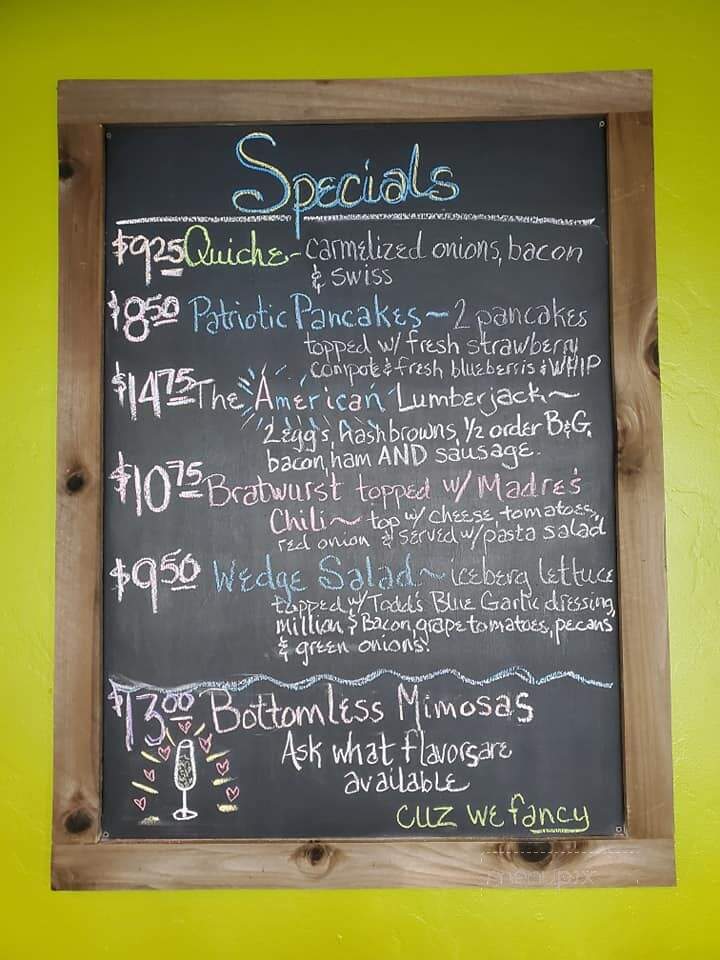 Specials
$9.25 Quiche - carmelized onions, bacon
& swiss
$8.50 Patriotic Pancakes ~ 2 pancakes
topped w/ fresh strawberry
compote & fresh blueberris & WHIP
$14.75 The American Lumberjack ~
2 eggs, hashbrowns, 1/2 order B&G,
bacon, ham AND sausage.
$10.75 Bratwurst topped w/ Madre's
Chili ~ top w/ cheese, tomatoes,
red onion & served w/ pasta salad
$9.50 Wedge Salad ~ iceberg lettuce
topped w/ Todd's Blue Garlic dressing,
million $ Bacon, grape tomatoes, pecans
& green onions.
$13.00 Bottomless Mimosas
Ask what flavors are
available
cuz we fancy